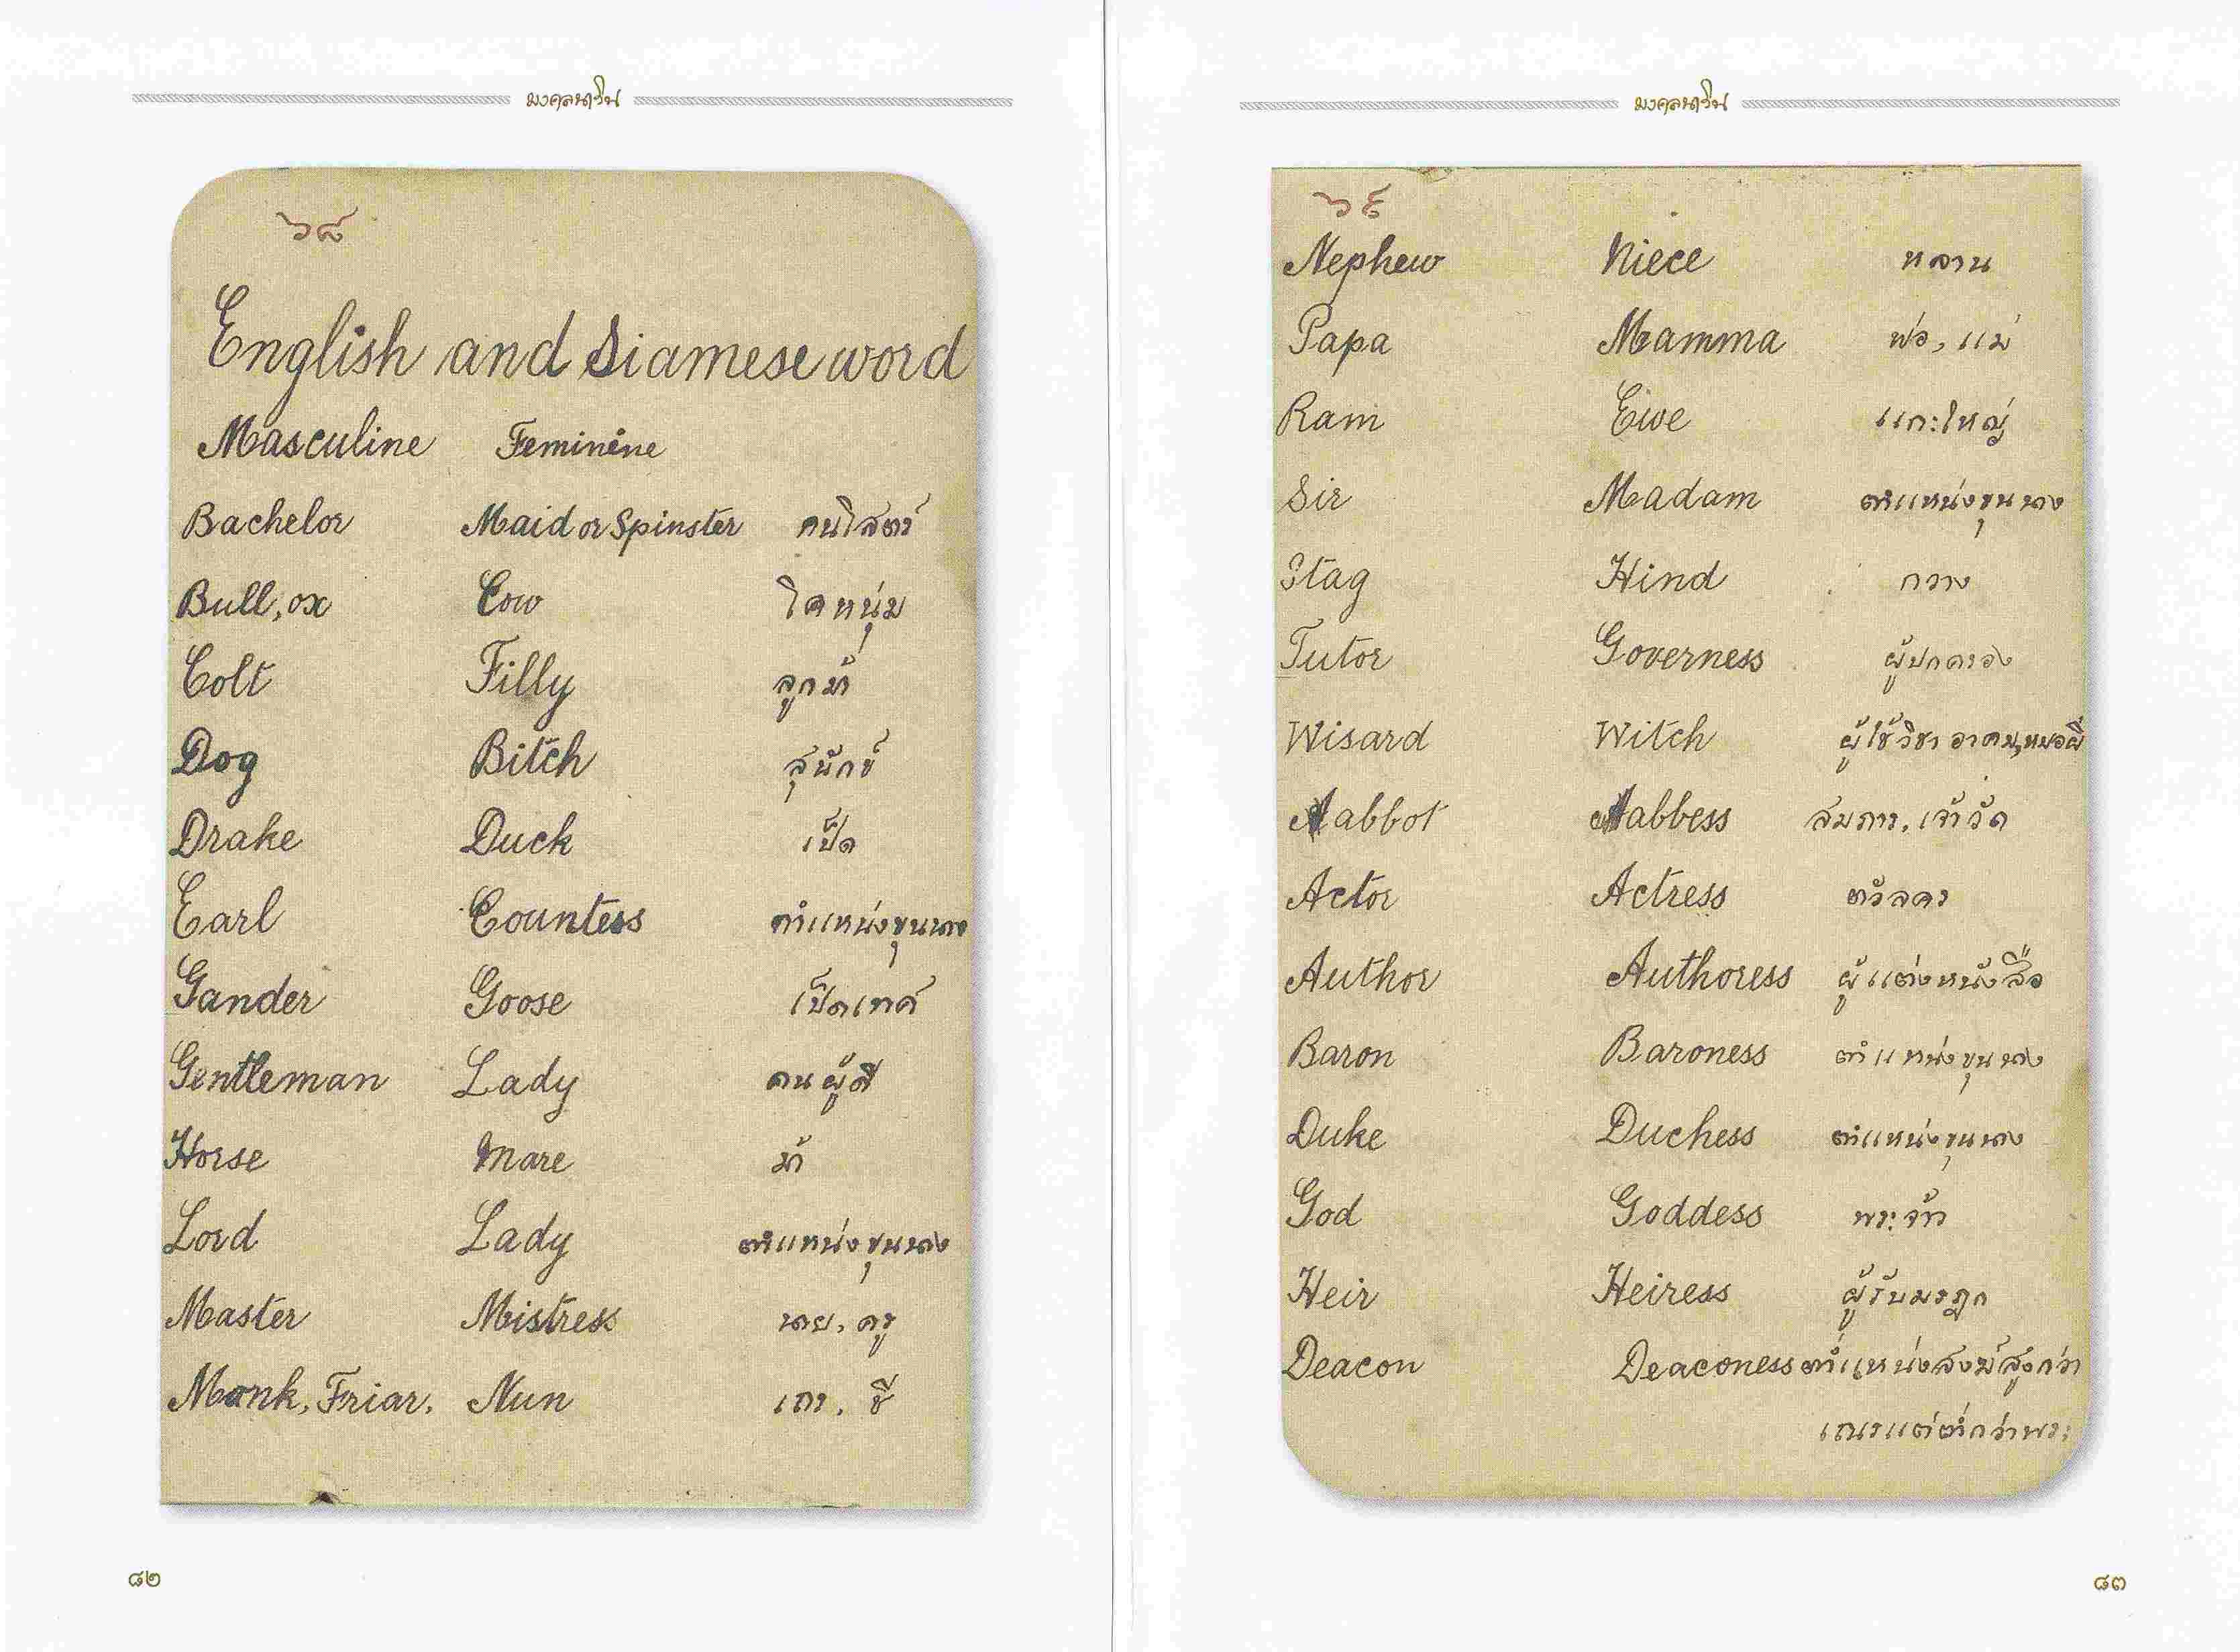 มงคลนาวิน
๖๘
English and Siamese word
Masculine Feminine
Bachelor Maid or Spinster คนโสดร์
Bull, ox Cow โคหนุ่ม
Colt Filly ลูกม้า
Dog Bitch สุนักข์
Drake Duck เป็ด
Earl Countess ตำแหน่งขุนนาง
Gander Goose เป็ดเทศ
Gentleman Lady คนผู้ดี
Horse Mare ม้า
Lord Lady ตำแหน่งขุนนาง
Master Mistress นาย, ครู
Monk, Friar, Nun เถร, ชี
๘๒
มงคลนาวิน
๖๙
Nephew Niece หลาน
Papa Mamma พ่อ, แม่
Ram Ewe แกะใหญ่
Sir Madam ตำแหน่งขุนนาง
Stag Hind กวาง
Tutor Governess ผู้ปกครอง
Wisard Witch ผู้ใช้วิชาอาคม, หมอผี
Aabbot Aabbess สมภาร, เจ้าวัด
Actor Actress ตัวลคร
Author Authoress ผู้แต่งหนังสือ
Baron Baroness ตำแหน่งขุนนาง
Duke Duchess ตำแหน่งขุนนาง
God Goddess พระเจ้า
Heir Heiress ผู้รับมรฎก
Deacon Deaconess ตำแหน่งสงฆ์สูงกว่า
เณรแต่ต่ำกว่าพระ
๘๓